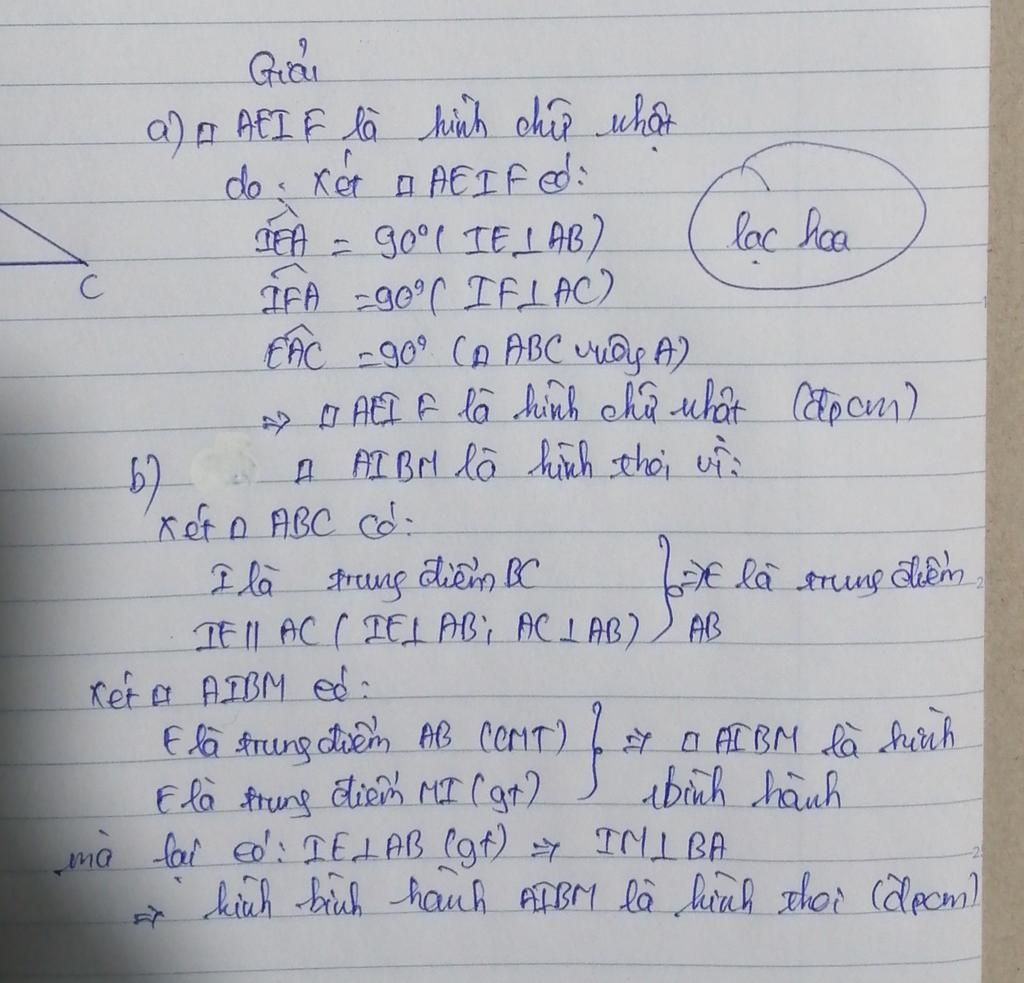 Giải
a) □ AEIF là hình chữ nhật
do: xét □ AEIF có:
IEA = 90° ( IE⊥AB)
lạc hoa
C
IFA = 90° ( IF⊥AC)
EAC = 90° (□ ABC vuông A)
=> □ AEIF là hình chữ nhật (đpcm)
b) □ AIBM là hình thoi vì:
xét □ ABC có:
I là trung điểm BC } => E là trung điểm
IE || AC ( IE⊥AB; AC⊥AB) AB
xét □ AIBM có:
E là trung điểm AB (CMT) } => □ AIBM là hình
E là trung điểm MI (gt) bình hành
mà lại có: IE⊥AB (gt) => IM⊥BA
=> hình bình hành AIBM là hình thoi (đpcm)